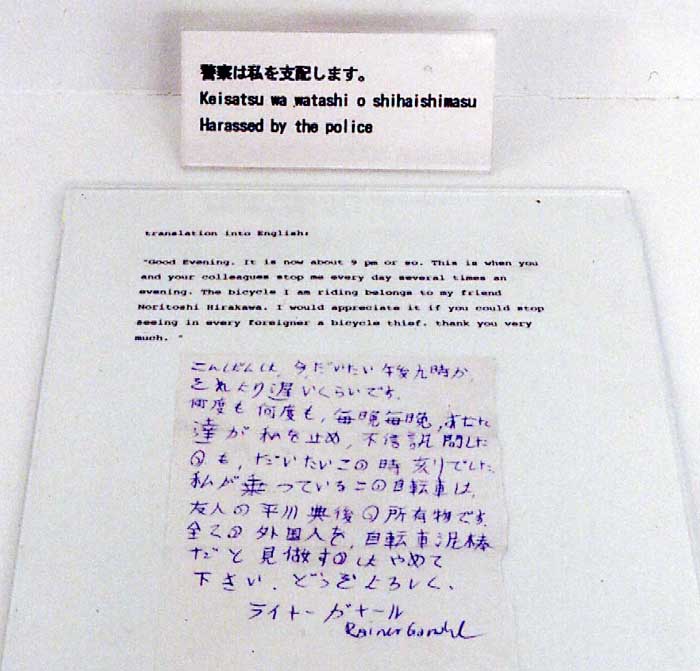 警察は私を支配します。
Keisatsu wa watashi o shihaishimasu
Harassed by the police
translation into English:
"Good Evening. It is now about 9 pm or so. This is when you
and your colleagues stop me every day several times an
evening. The bicycle I am riding belongs to my friend
Noritoshi Hirakawa. I would appreciate it if you could stop
seeing in every foreigner a bicycle thief. thank you very
much. "
こんばんは、今、だいたい午後九時か、
それより遅いくらいです。
何度も何度も、毎晩毎晩、あなた
達が私を止め、不信訊問した
のも、だいたいこの時刻でした。
私が乗っているこの自転車は、
友人の平川典俊の所有物です。
全ての外国人を、自転車泥棒
だと見做すのはやめて
下さい。どうぞよろしく、
ライナー ガナール
Rainer Ganahl